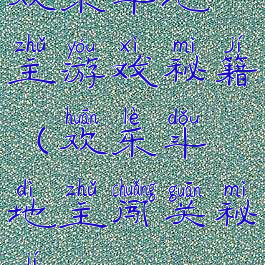 zhǔ yóu xì mì jí
主游戏秘籍
huān lè dòu
(欢乐斗
dì zhǔ chuǎng guān mì
地主闯关秘